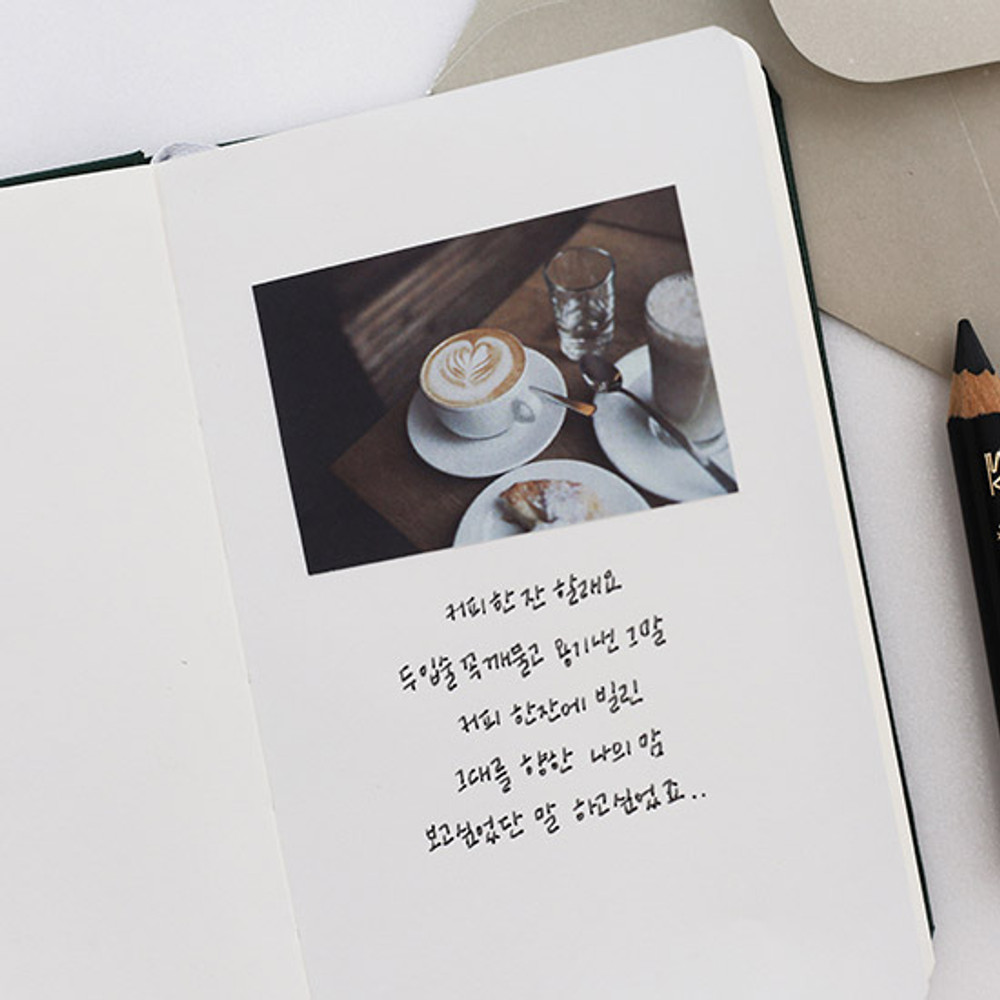 커피한잔 할래요
두입술 꼭깨물고 용기낸 그말
커피 한잔에 빌린
그대를 향한 나의 맘
보고싶었단 말 하고싶었죠..